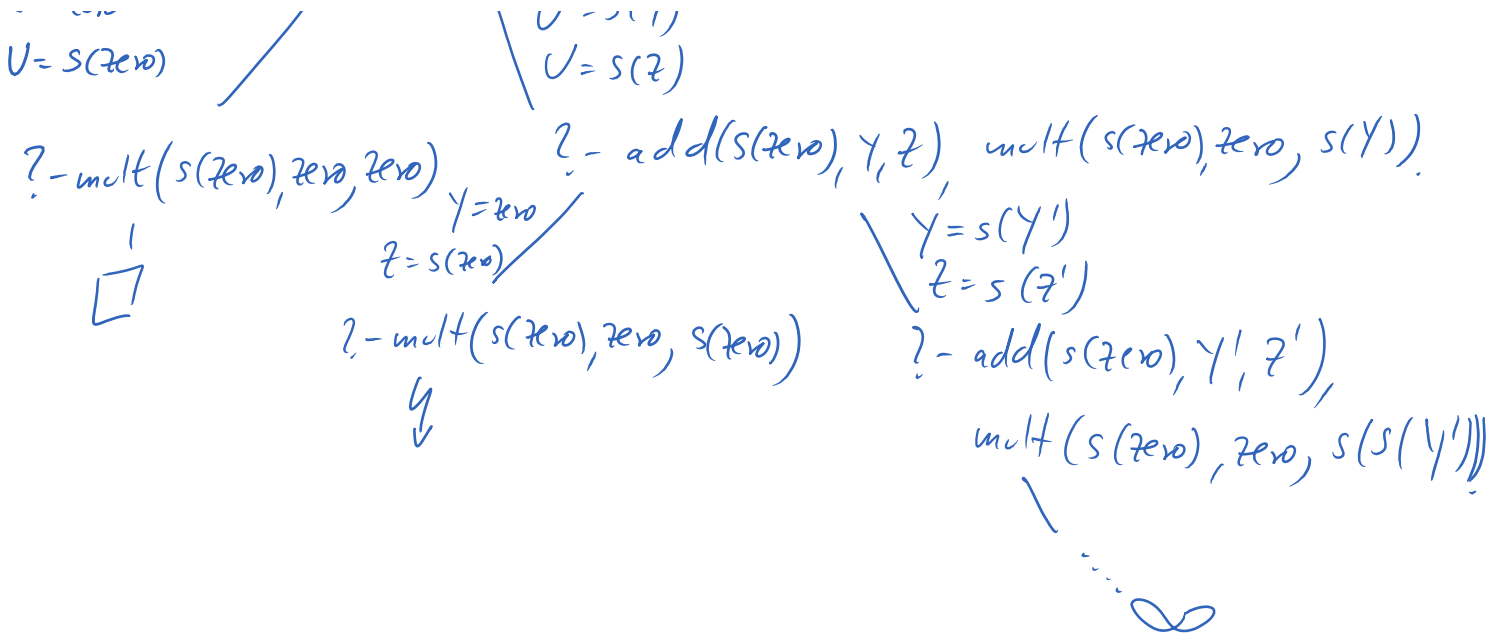 U = s(zero)
U = s(Z)
?- mult(s(zero), zero, zero)
?- add(s(zero), Y, Z), mult(s(zero), zero, s(Y)).
Y = zero
Z = s(zero)
Y = s(Y')
Z = s(Z')
?- mult(s(zero), zero, s(zero))
?- add(s(zero), Y', Z'),
mult(s(zero), zero, s(s(Y'))).